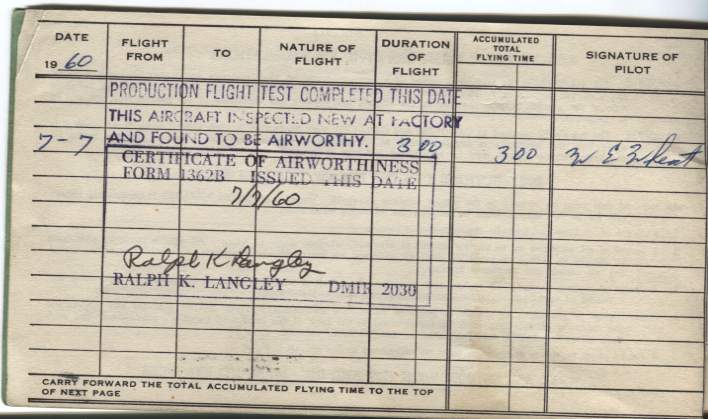 DATE
19 60
FLIGHT FROM
TO
NATURE OF FLIGHT
DURATION OF FLIGHT
ACCUMULATED TOTAL FLYING TIME
SIGNATURE OF PILOT
PRODUCTION FLIGHT TEST COMPLETED THIS DATE
THIS AIRCRAFT INSPECTED NEW AT FACTORY
7-7 AND FOUND TO BE AIRWORTHY. 3 00 3 00 W E Wheat
CERTIFICATE OF AIRWORTHINESS
FORM 1362B ISSUED THIS DATE
7/7/60
Ralph K Langley
RALPH K. LANGLEY DMIR 2030
CARRY FORWARD THE TOTAL ACCUMULATED FLYING TIME TO THE TOP
OF NEXT PAGE